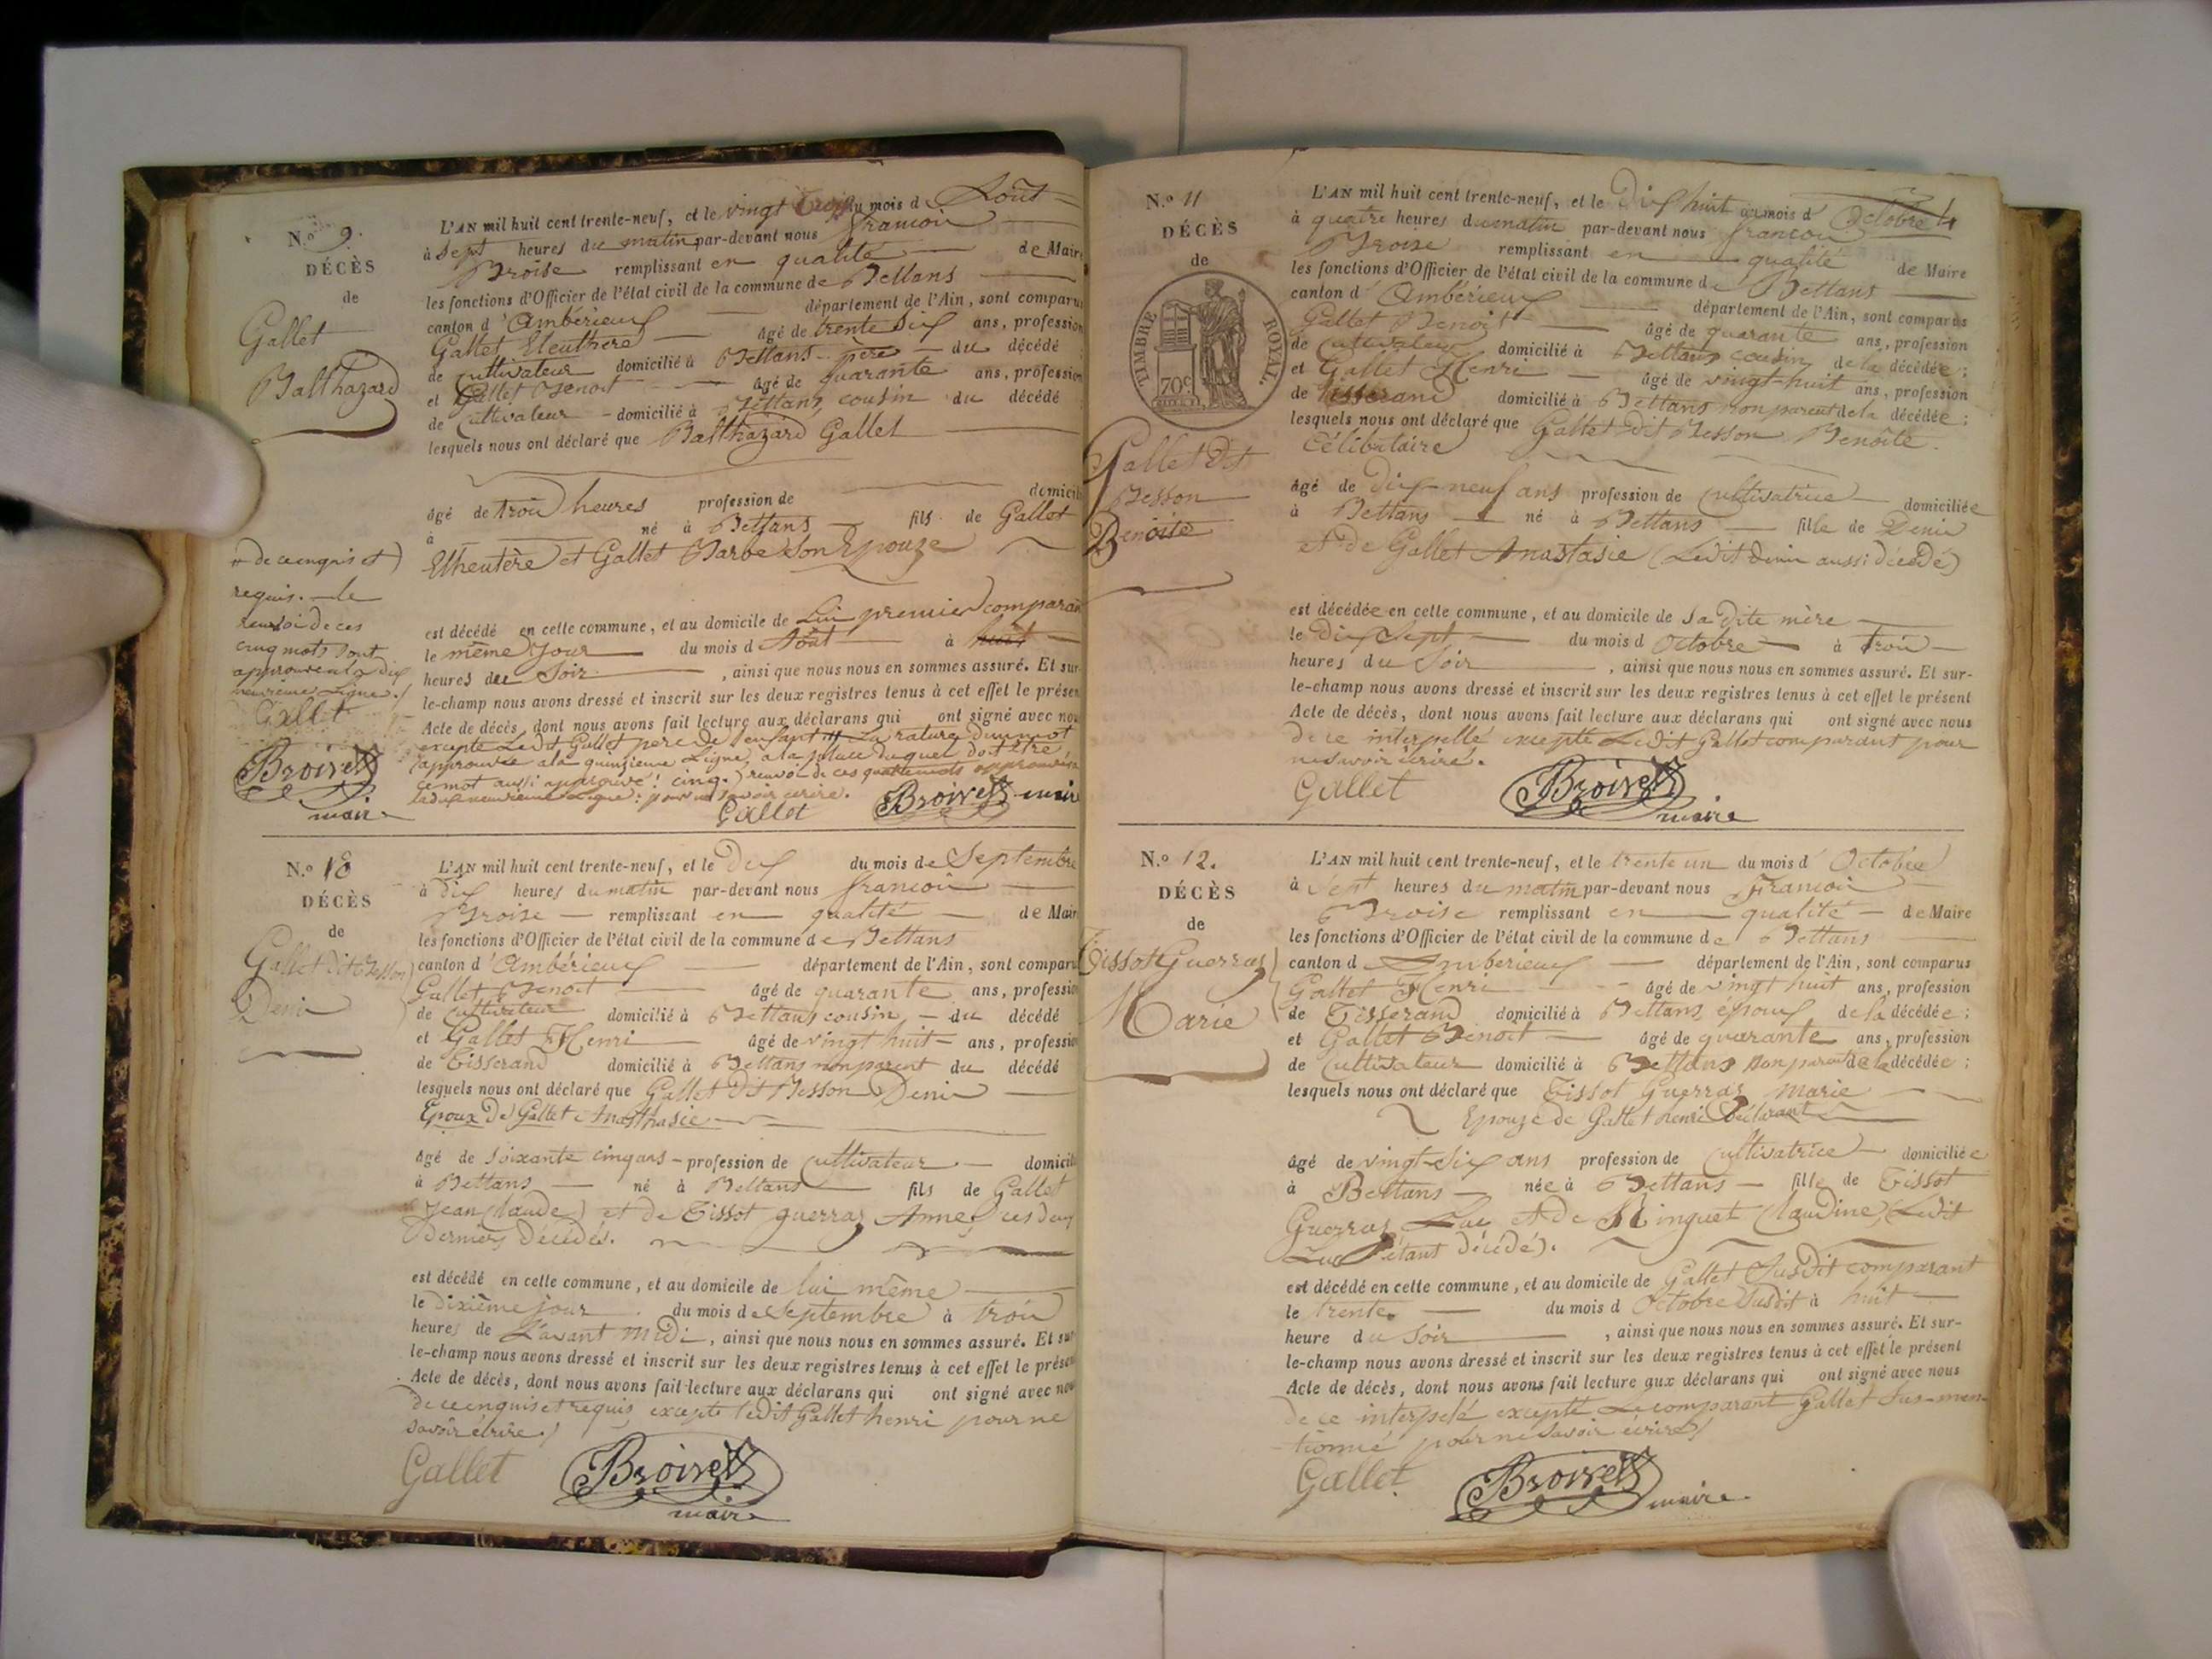 N.º 9.
DÉCÈS
de
Gallet
Balthazard
L'AN mil huit cent trente-neuf, et le vingt trois du mois d Août
à sept heures du matin par-devant nous francois
Broise remplissant en qualité de Maire
les fonctions d'Officier de l'état civil de la commune de Bettans
canton d'Ambérieux département de l'Ain, sont comparus
Gallet Eleuthère âgé de trente six ans, profession
de Cultivateur domicilié à Bettans père du décédé
et Gallet Benoit âgé de quarante ans, profession
de Cultivateur domicilié à Bettans, cousin du décédé
lesquels nous ont déclaré que Balthazard Gallet
âgé de trois heures profession de domicili
à né à Bettans fils de Gallet
Eltheutère et Gallet Barbe son Epouze
est décédé en cette commune, et au domicile de Lui premier comparan
le même jour du mois d Août à
heures du Soir, ainsi que nous nous en sommes assuré. Et sur-
le-champ nous avons dressé et inscrit sur les deux registres tenus à cet effet le présen
Acte de décès, dont nous avons fait lecture aux déclarans qui ont signé avec nou
excepté Ledit Gallet père de l'enfant La rature d'un mot
approuvée a la quinzieme Ligne, a la place duquel doit être,
ce mot aussi approuvé! cinq.) renvoi de ces quatre mots approuvés
la dixneuvieme Ligne: pour ne savoir ecrire.
Gallet Broise maire
de ce enquis et)
requis. le
renvoi de ces
cinq mots sont
approuvent a la dix
neuvieme Ligne./
Gallet
Broise
maire
N.º 10
DÉCÈS
de
Gallet dit Besson
Denis
L'AN mil huit cent trente-neuf, et le Dix du mois de Septembre
à dix heures du matin par-devant nous francois
Broise remplissant en qualité de Mair
les fonctions d'Officier de l'état civil de la commune de Bettans
canton d'Ambérieux département de l'Ain, sont comparu
Gallet Benoit âgé de quarante ans, professio
de Cultivateur domicilié à Bettans cousin, du décédé
et Gallet Henri âgé de vingt huit ans, professio
de Tisserand domicilié à Bettans non parent du décédé
lesquels nous ont déclaré que Gallet dit Besson Denis
Epoux De Gallet Anasthasie
âgé de soixante cinq ans profession de Cultivateur domicili
à Bettans né à Bettans fils de Gallet
Jean Claude) et de Tissot guerraz Anne, ces deux
derniers Décédés.
est décédé en cette commune, et au domicile de lui même
le dixième jour du mois de septembre à trois
heures de L'avant midi, ainsi que nous nous en sommes assuré. Et sur
le-champ nous avons dressé et inscrit sur les deux registres tenus à cet effet le présen
Acte de décès, dont nous avons fait lecture aux déclarans qui ont signé avec nou
de ce enquis et requis, excepté ledit Gallet henri pour ne
savoir écrire./
Gallet Broise
maire
N.º 11
DÉCÈS
de
TIMBRE ROYAL.
70c
Gallet Dit
Besson
Benoite
L'AN mil huit cent trente-neuf, et le Dix huit du mois d'Octobre
à quatre heures du matin par-devant nous francois
Broise remplissant en qualité de Maire
les fonctions d'Officier de l'état civil de la commune de Bettans
canton d'Ambérieux département de l'Ain, sont comparus
Gallet Benoit âgé de quarante ans, profession
de Cultivateur domicilié à Bettans cousin de la décédée;
et Gallet Henri âgé de vingt-huit ans, profession
de tisserand domicilié à Bettans non parent de la décédée;
lesquels nous ont déclaré que Gallet Dit Besson Benoîte
Célibataire
âgé de Dix-neuf ans profession de Cultivatrice domiciliée
à Bettans né à Bettans fille de Denis
et de Gallet Anastasie (Ledit Denis aussi décédé)
est décédée en cette commune, et au domicile de sa dite mère
le Dix Sept du mois d Octobre à trois
heures du Soir, ainsi que nous nous en sommes assuré. Et sur-
le-champ nous avons dressé et inscrit sur les deux registres tenus à cet effet le présent
Acte de décès, dont nous avons fait lecture aux déclarans qui ont signé avec nous
de ce interpellé excepté Ledit Gallet comparant pour
ne savoir écrire.
Gallet Broise
maire
N.º 12.
DÉCÈS
de
Tissot Guerraz
Marie
L'AN mil huit cent trente-neuf, et le trente un du mois d'Octobre
à Sept heures du matin par-devant nous Francois
Broise remplissant en qualité de Maire
les fonctions d'Officier de l'état civil de la commune de Bettans
canton d Amberieux département de l'Ain, sont comparus
Gallet Henri âgé de vingt huit ans, profession
de Tisserand domicilié à Bettans, époux de la décédée;
et Gallet Benoit âgé de quarante ans, profession
de Cultivateur domicilié à Bettans non parent de la décédée;
lesquels nous ont déclaré que Tissot Guerraz Marie
Epouze de Gallet henri Déclarant
âgé de vingt-six ans profession de Cultivatrice domiciliée
à Bettans née à Bettans fille de Tissot
Guerraz Luc et de Minguet Claudine, (Ledit
Luc étant décédé).
est décédé en cette commune, et au domicile de Gallet Susdit comparant
le trente du mois d Octobre susdit à huit
heure du Soir, ainsi que nous nous en sommes assuré. Et sur-
le-champ nous avons dressé et inscrit sur les deux registres tenus à cet effet le présent
Acte de décès, dont nous avons fait lecture aux déclarans qui ont signé avec nous
de ce interpelé excepté Le comparant Gallet Sus-men-
tionné pour ne savoir écrire/
Gallet Broise maire.